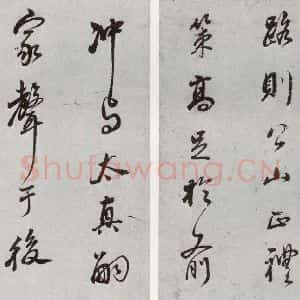 路則公山正禮
策高足於前
冲与太真嗣
家聲于後
Shufawang.CN